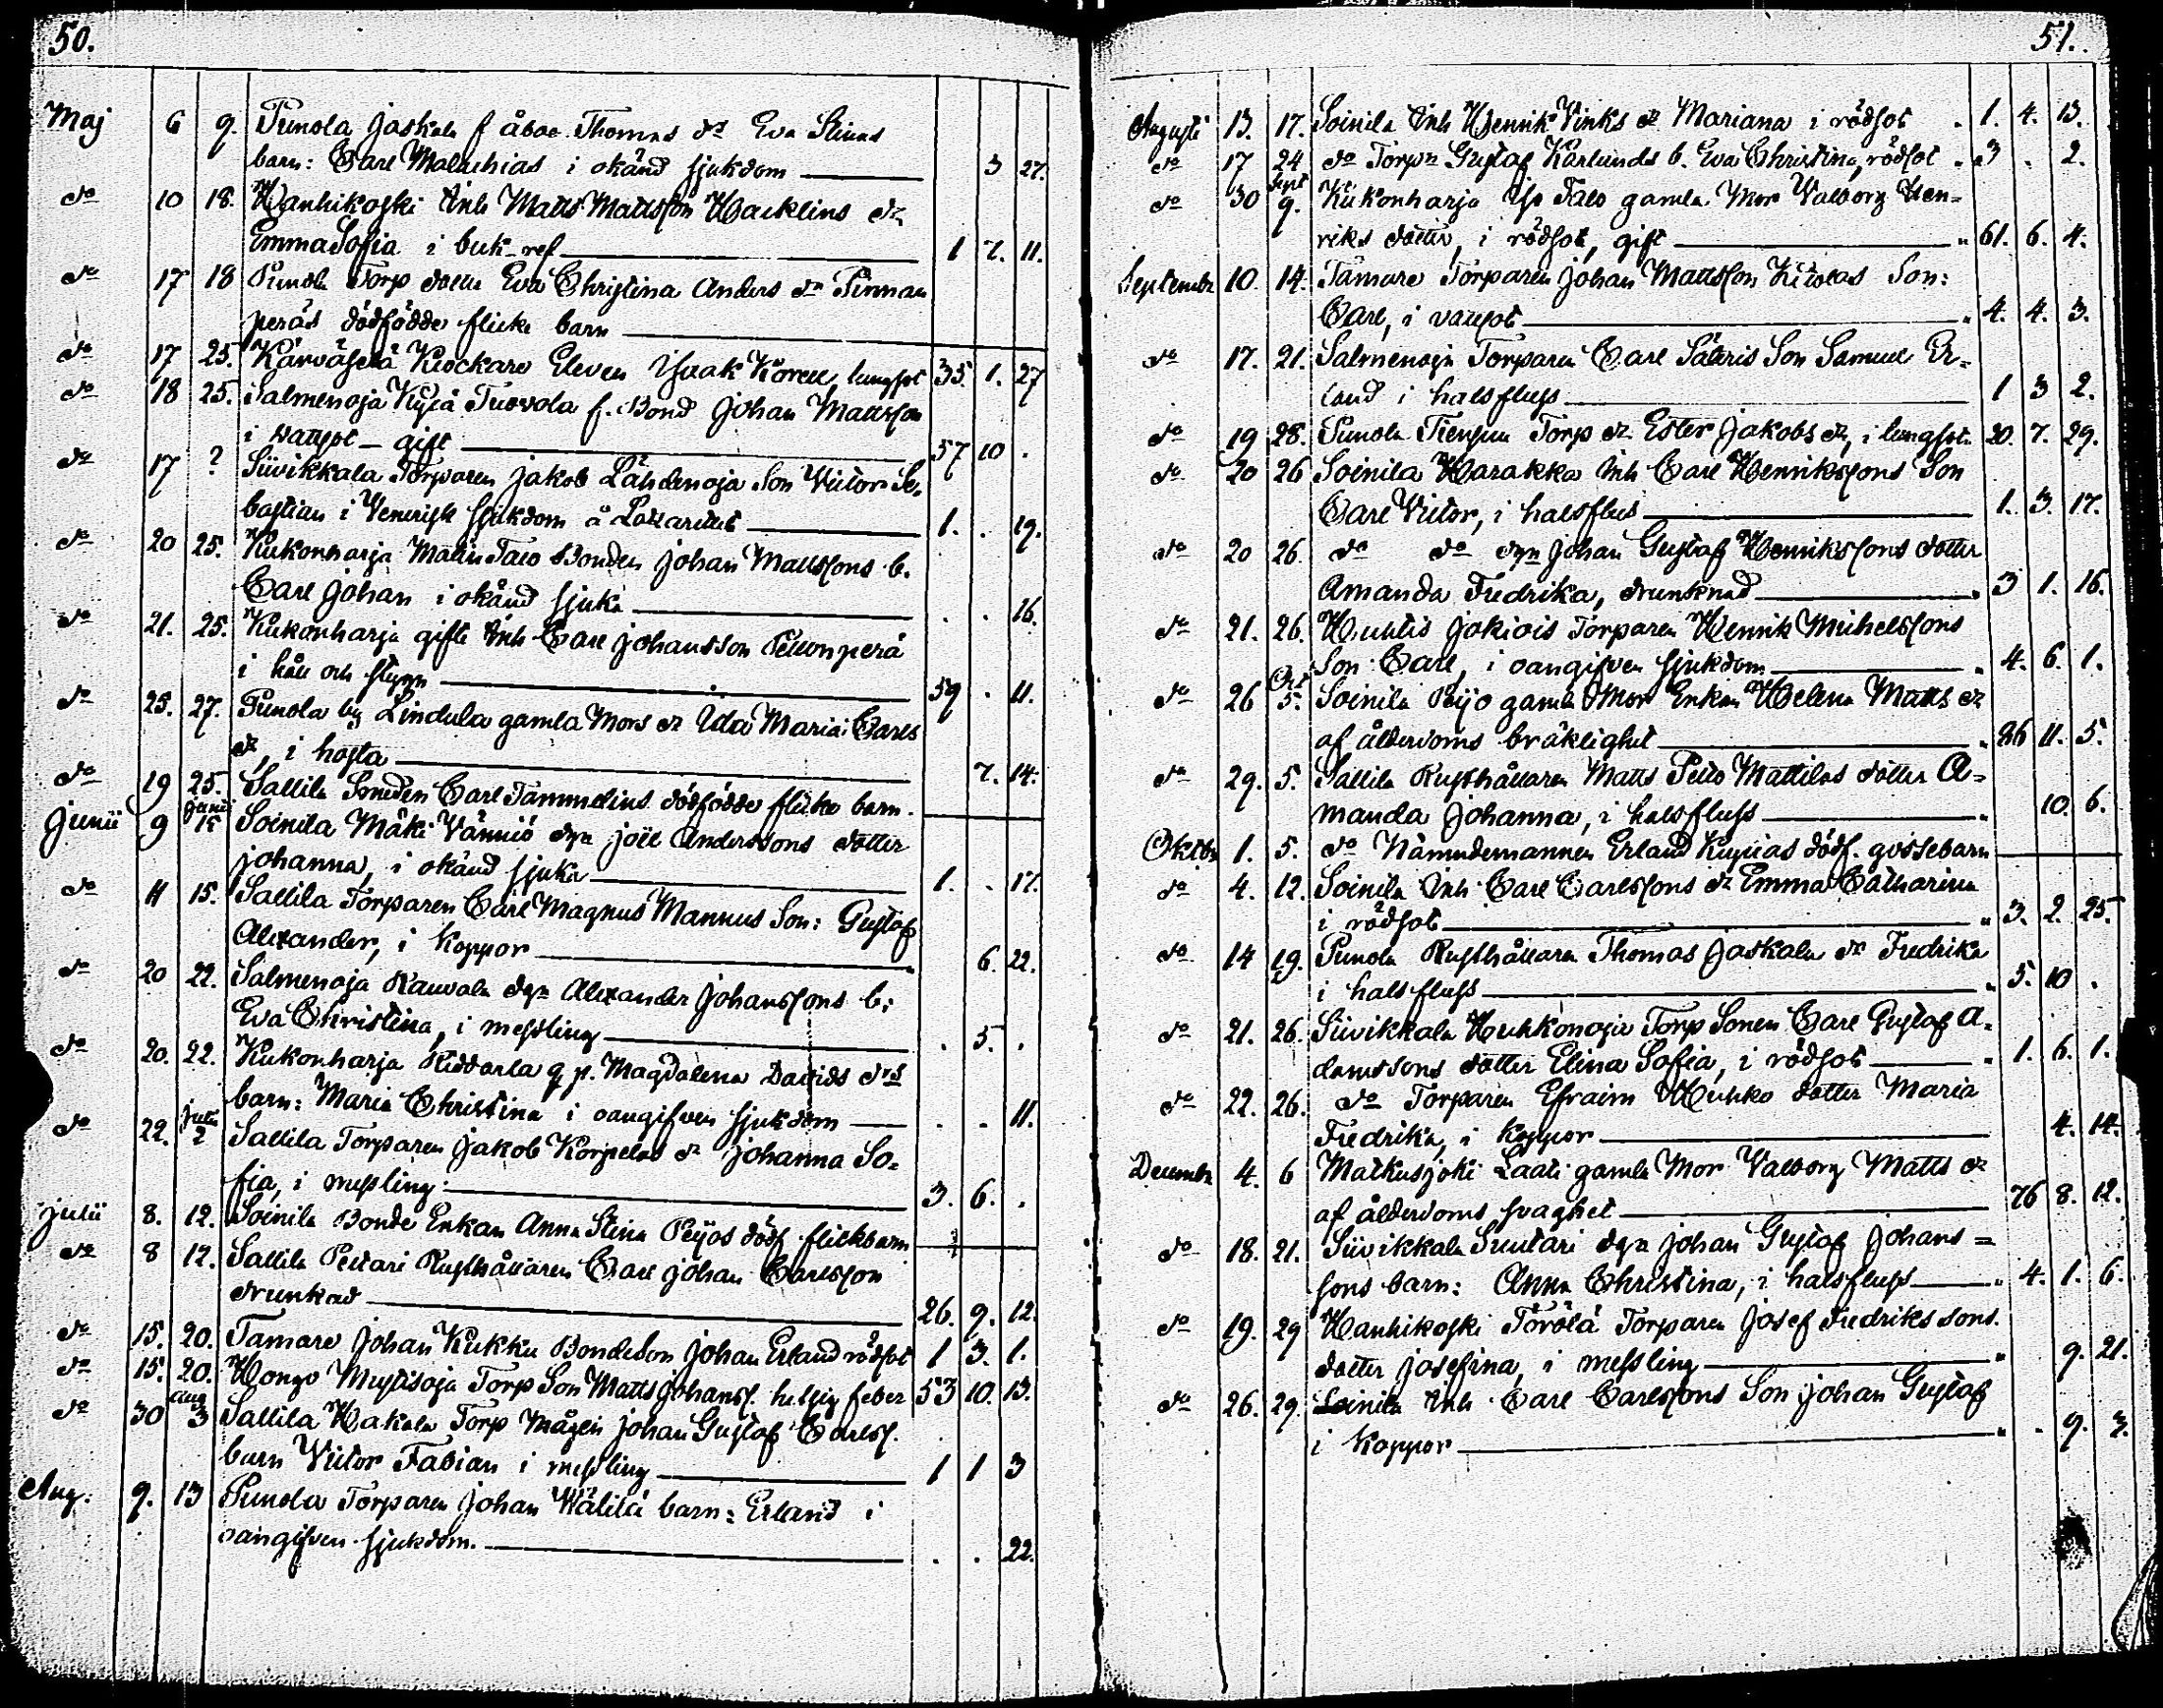 50.
Maj 6 9. Punola Jaskala f åboe Thomas dr Eva Stinas
barn: Carl Malachias i okänd sjukdom 3 27.
do 10 18. Hanhikoski Inh Matts Mattsson Hacklins dr
Emma Sofia i buk-ref 1 7. 11.
do 17 18 Punola Torp dotter Eva Christina Anders dr Pinnan
peräs dödfödde flicke barn
do 17 25. Kärväselä Klockare Eleven Isaak Korell, lungsot 35. 1. 27
do 18 25. Salmenoja Kylä Tuovola f. Bond Johan Mattsson
i vattsot - gift 57 10 .
do 17 ? Siivikkala Torparen Jakob Lähdenoja Son Victor Se-
bastian i Venerisk sjukdom å Lazarettet 1. . 19.
do 20 25. Kukonharja Talo Bonden Johan Mattssons b.
Carl Johan i okänd sjuka . . 16.
do 21. 25. Kukonharja gifte Inh Carl Johansson Pellonperä
i håll och styng 59 . 11.
do 25. 27. Punola by Lindula gamla Mors dr Ida Maria Carls
dr, i hosta 7. 14.
do 19 25. Sallila Smeden Carl Tammelins dödfödde flicke barn.
Junii 9 Junii 15 Soinila Mäki Vänniö dgn Joel Anderssons dotter
Johanna, i okänd sjuka 1. . 17.
do 11 15. Sallila Torparen Carl Magnus Mannus Son: Gustaf
Alexander, i Koppor 6. 22.
do 20 22. Salmenoja Rauvola dgn Alexander Johanssons b:
Eva Christina, i messling . 5. .
do 20. 22. Kukonharja Riddarla q p. Magdalena Davids drs
barn: Maria Christina i oangifven sjukdom . . 11.
do 22. Julii 2 Sallila Torparen Jakob Korpelas dr Johanna So-
fia, i messling 3. 6. .
Julii 8. 12. Soinila Bonde Enkan Anna Stina Peijos dödf. flickbarn
do 8 12. Sallila Peltari Rusthållaren Carl Johan Carlsson
drunkad 26. 9. 12.
do 15. 20. Tamare Johan Kukku Bondeson Johan Erland rödsot 1 3. 1.
do 15. 20. Hongo Mustisoja Torp Son Matts Johanss. hetsig feber 53 10. 13.
do 30 Aug 3 Sallila Hakala Torp Mågen Johan Gustaf Carlss.
barn Victor Fabian i messling 1 1 3
Aug. 9. 13 Punola Torparen Johan Wälilä barn: Erland i
oangifven sjukdom. . . 22.
51.
Augusti 13. 17. Soinila Inh Henrik Vinks dr Mariana i rödsot 1. 4. 13.
do 17 24 do Torpn Gustaf Karlunds b. Eva Christina, rödsot 3 . 2.
do 30 Sept 9. Kukonharja Talo gamla Mor Valborg Hen-
riks dotter, i rödsot, gift 61. 6. 4.
September 10. 14. Tamare Torparen Johan Mattsson Son:
Carl, i vattsot 4. 4. 3.
do 17. 21. Salmenoja Torparen Carl Säteris Son Samuel Er-
land i halsfluss 1 3 2.
do 19 28. Punola Torp dr Ester Jakobs dr, i lungsot 20. 7. 29.
do 20 26 Soinila Harakka Inh Carl Henrikssons Son
Carl Victor, i halsfluss 1. 3. 17.
do 20 26. do do dgn Johan Gustaf Henrikssons dotter
Amanda Fredrika, drunknad 3 1. 16.
do 21. 26. Huhtis Jokiois Torparen Henrik Michelssons
Son Carl, i oangifven sjukdom 4. 6. 1.
do 26 Oct 5. Soinila Peijo gamla Mor Enkan Helena Matts dr
af ålderdoms bräklighet 86 11. 5.
do 29. 5. Sallila Rusthållaren Matts Mattilas dotter A-
manda Johanna, i halsfluss 10. 6.
Oktobr 1. 5. do Nämndemannen Erland dödf. gossebarn
do 4. 12. Soinila Inh Carl Carlssons dr Emma Catharina
i rödsot 3. 2. 25.
do 14 19. Punola Rusthållaren Thomas Jaskala dr Fredrika
i halsfluss 5. 10 .
do 21. 26. Siivikkala Huhkonoja Torp Sonen Carl Gustaf A-
damssons dotter Elina Sofia, i rödsot 1. 6. 1.
do 22. 26. do Torparen Efraim Huhko dotter Maria
Fredrika, i Koppor 4. 14.
December 4. 6 Matkusjoki Laati gamla Mor Valborg Matts dr
af ålderdoms svaghet 76 8. 12.
do 18. 21. Siivikkala Suutari dgn Johan Gustaf Johans=
sons barn: Anna Christina, i halsfluss 4. 1. 6.
do 19. 29 Hanhikoski Törölä Torparen Josef Fredrikssons.
dotter Josefina, i messling 9. 21.
do 26. 29. Soinila Inh Carl Carlssons Son Johan Gustaf
i Koppor . 9. 3.